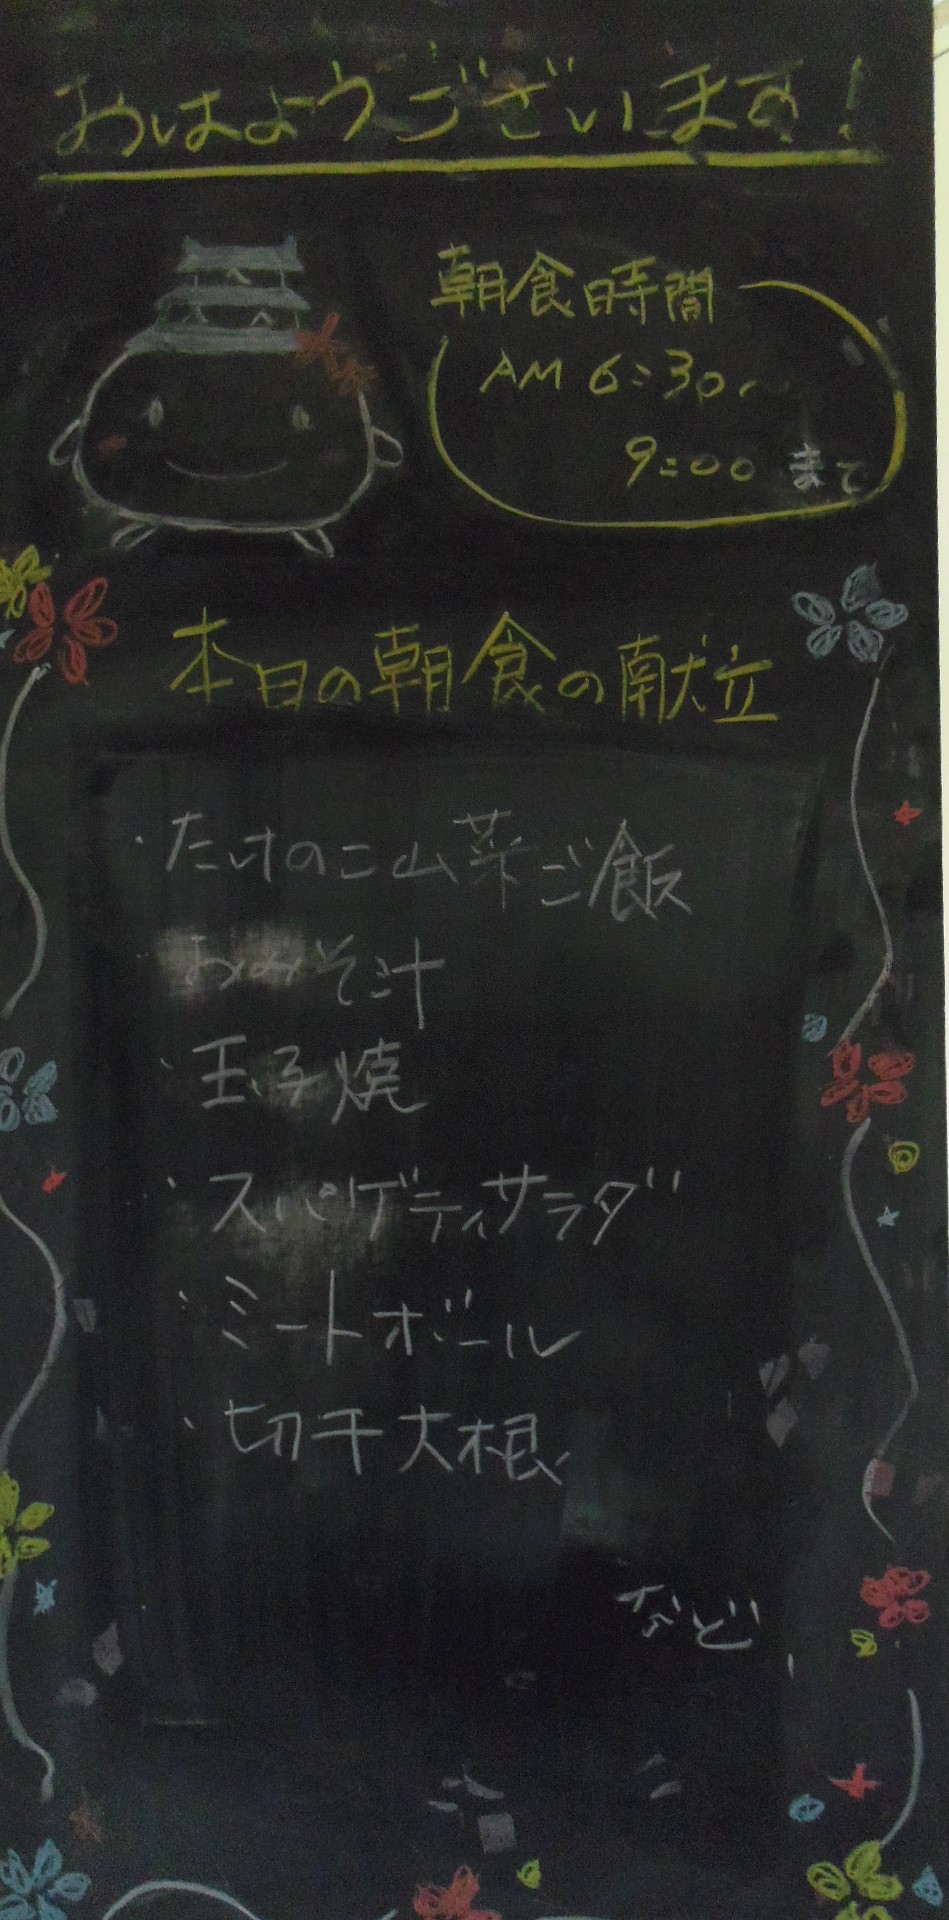 おはようございます!
朝食時間
AM 6:30〜
9:00 まで
本日の朝食の献立
・たけのこ山菜ご飯
おみそ汁
・玉子焼
・スパゲティサラダ
・ミートボール
・切干大根
など